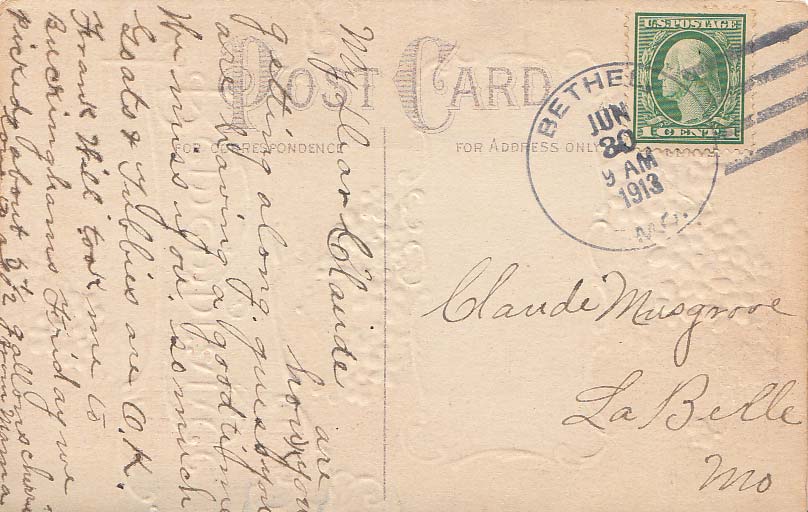 POST CARD
FOR CORRESPONDENCE
FOR ADDRESS ONLY
U.S. POSTAGE
1 CENT 1
BETHEL
JUN
30
9 AM
1913
MO.
My Dear Claude
how are you
getting along. guess you
are having a good time
We miss you. so much
Goats & Tabbies are O.K.
Frank Will took me to
Buckinghams Friday we
picked about 5 gallons cherries
from Mama
Claude Musgrove
La Belle
Mo